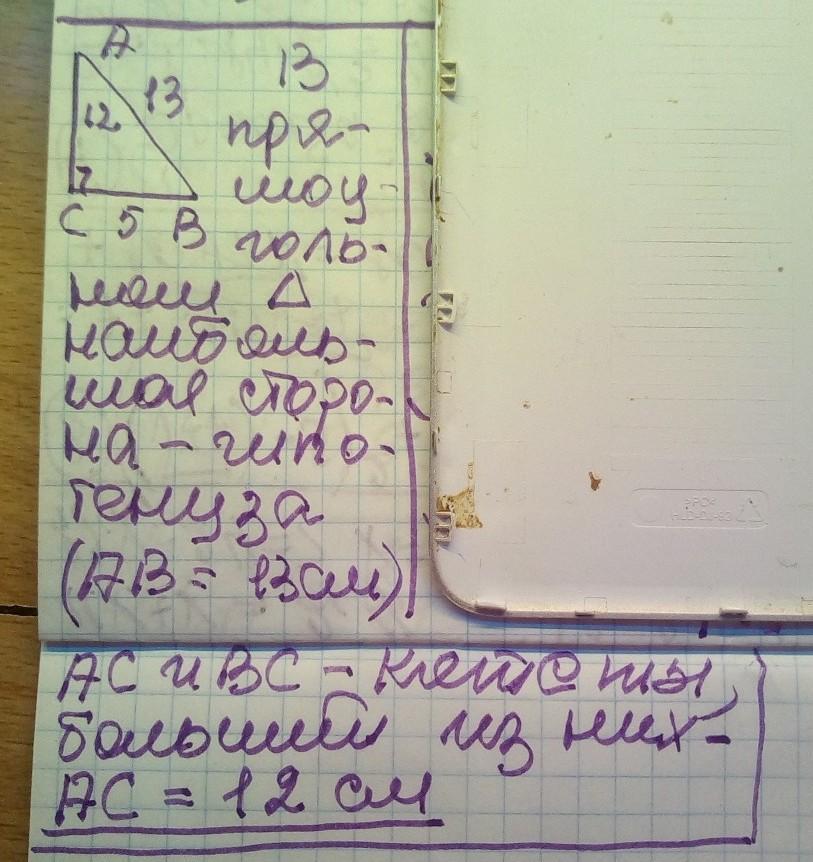 A
13
12
C 5 B
В
пря-
моу-
голь-
ном Δ
наиболь-
шая сторо-
на - гипо-
тенуза
(AB = 13см)
AC и BC - катеты,
больший из них-
AC = 12 см